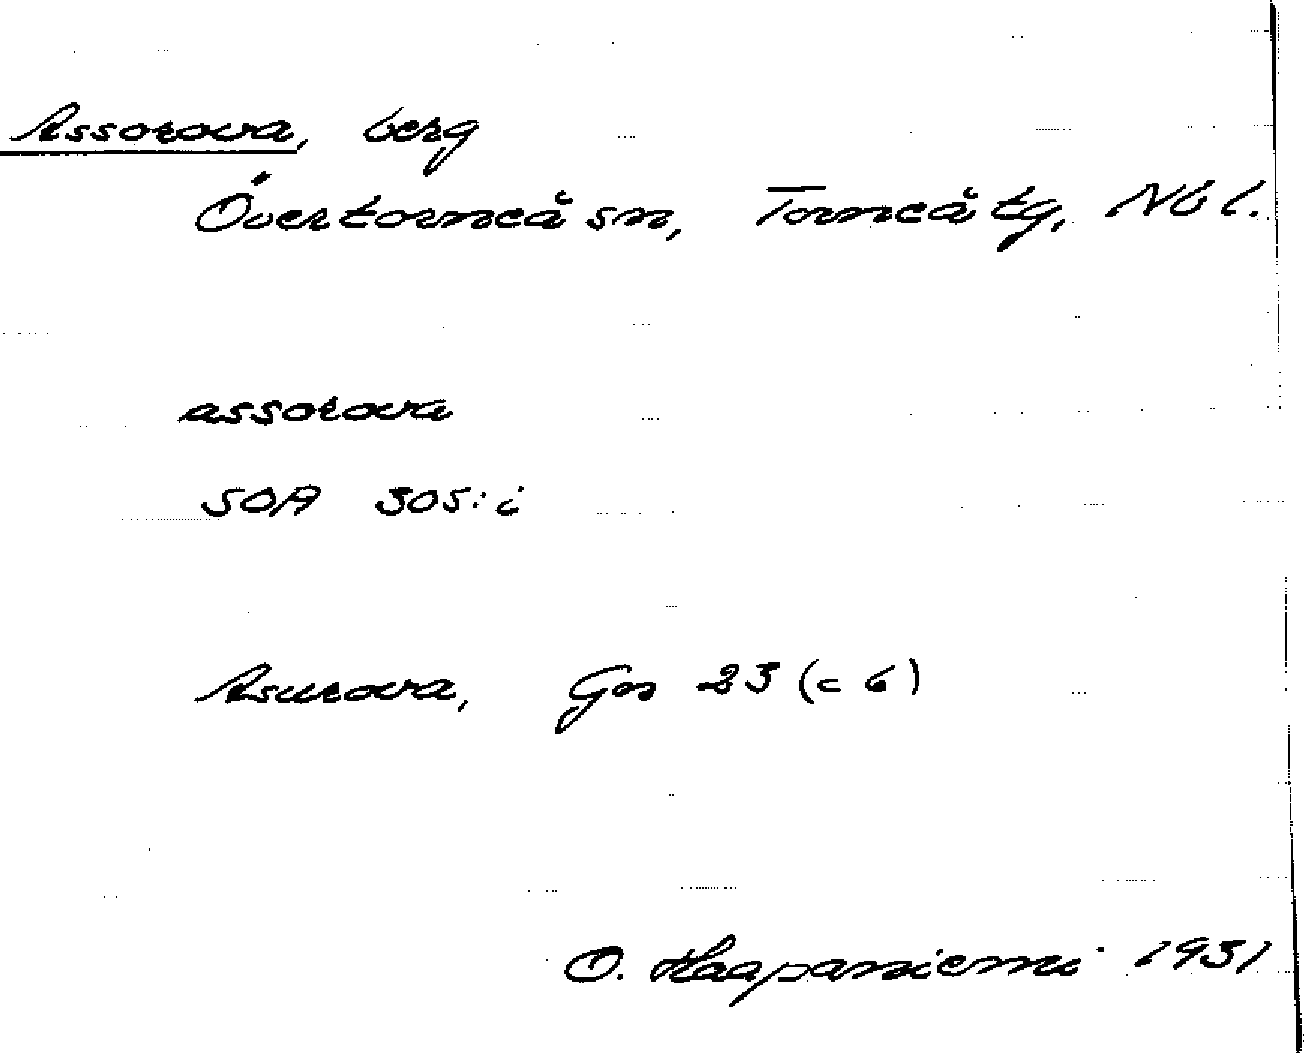 Assorova, berg
Övertorneå sn, Torneå tg, Nb l.
assorova
SOA 305:i
Asurova, Gn 23 (c 6)
O. Haapaniemi 1931